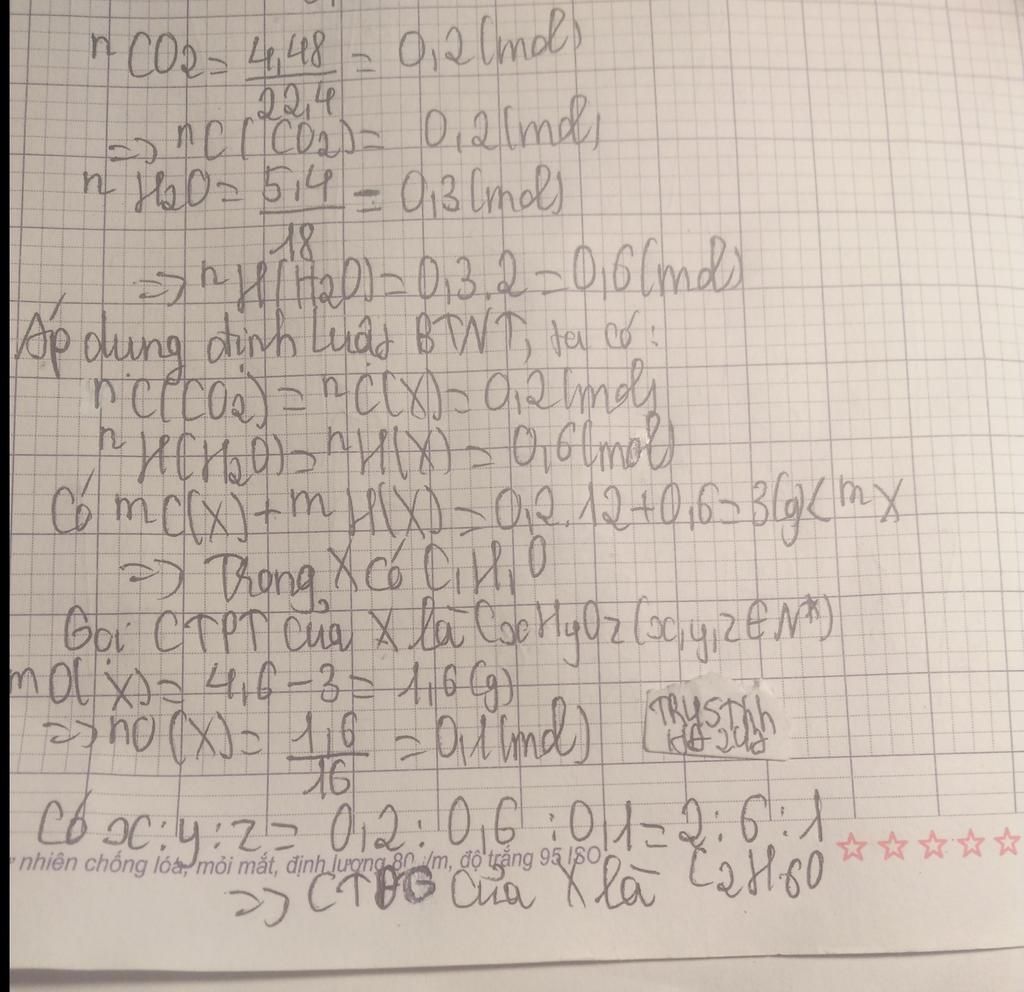 nCO2 = 4,48/22,4 = 0,2 (mol)
=> nC(CO2) = 0,2 (mol)
nH2O = 5,4/18 = 0,3 (mol)
=> nH(H2O) = 0,3.2 = 0,6 (mol)
Áp dụng định luật BTNT, ta có:
nC(CO2) = nC(X) = 0,2 (mol)
nH(H2O) = nH(X) = 0,6 (mol)
Có mC(X) + mH(X) = 0,2.12 + 0,6 = 3(g) < mX
=> Trong X có C, H, O
Gọi CTPT của X là CxHyOz (x, y, z ∈ N*)
mO(X) = 4,6 - 3 = 1,6 (g)
=> nO(X) = 1,6/16 = 0,1 (mol)
Có x : y : z = 0,2 : 0,6 : 0,1 = 2 : 6 : 1
nhiên chống lóa, mỏi mắt, định lượng 80 /m, độ trắng 95 ISO
=> CTĐG của X là C2H6O